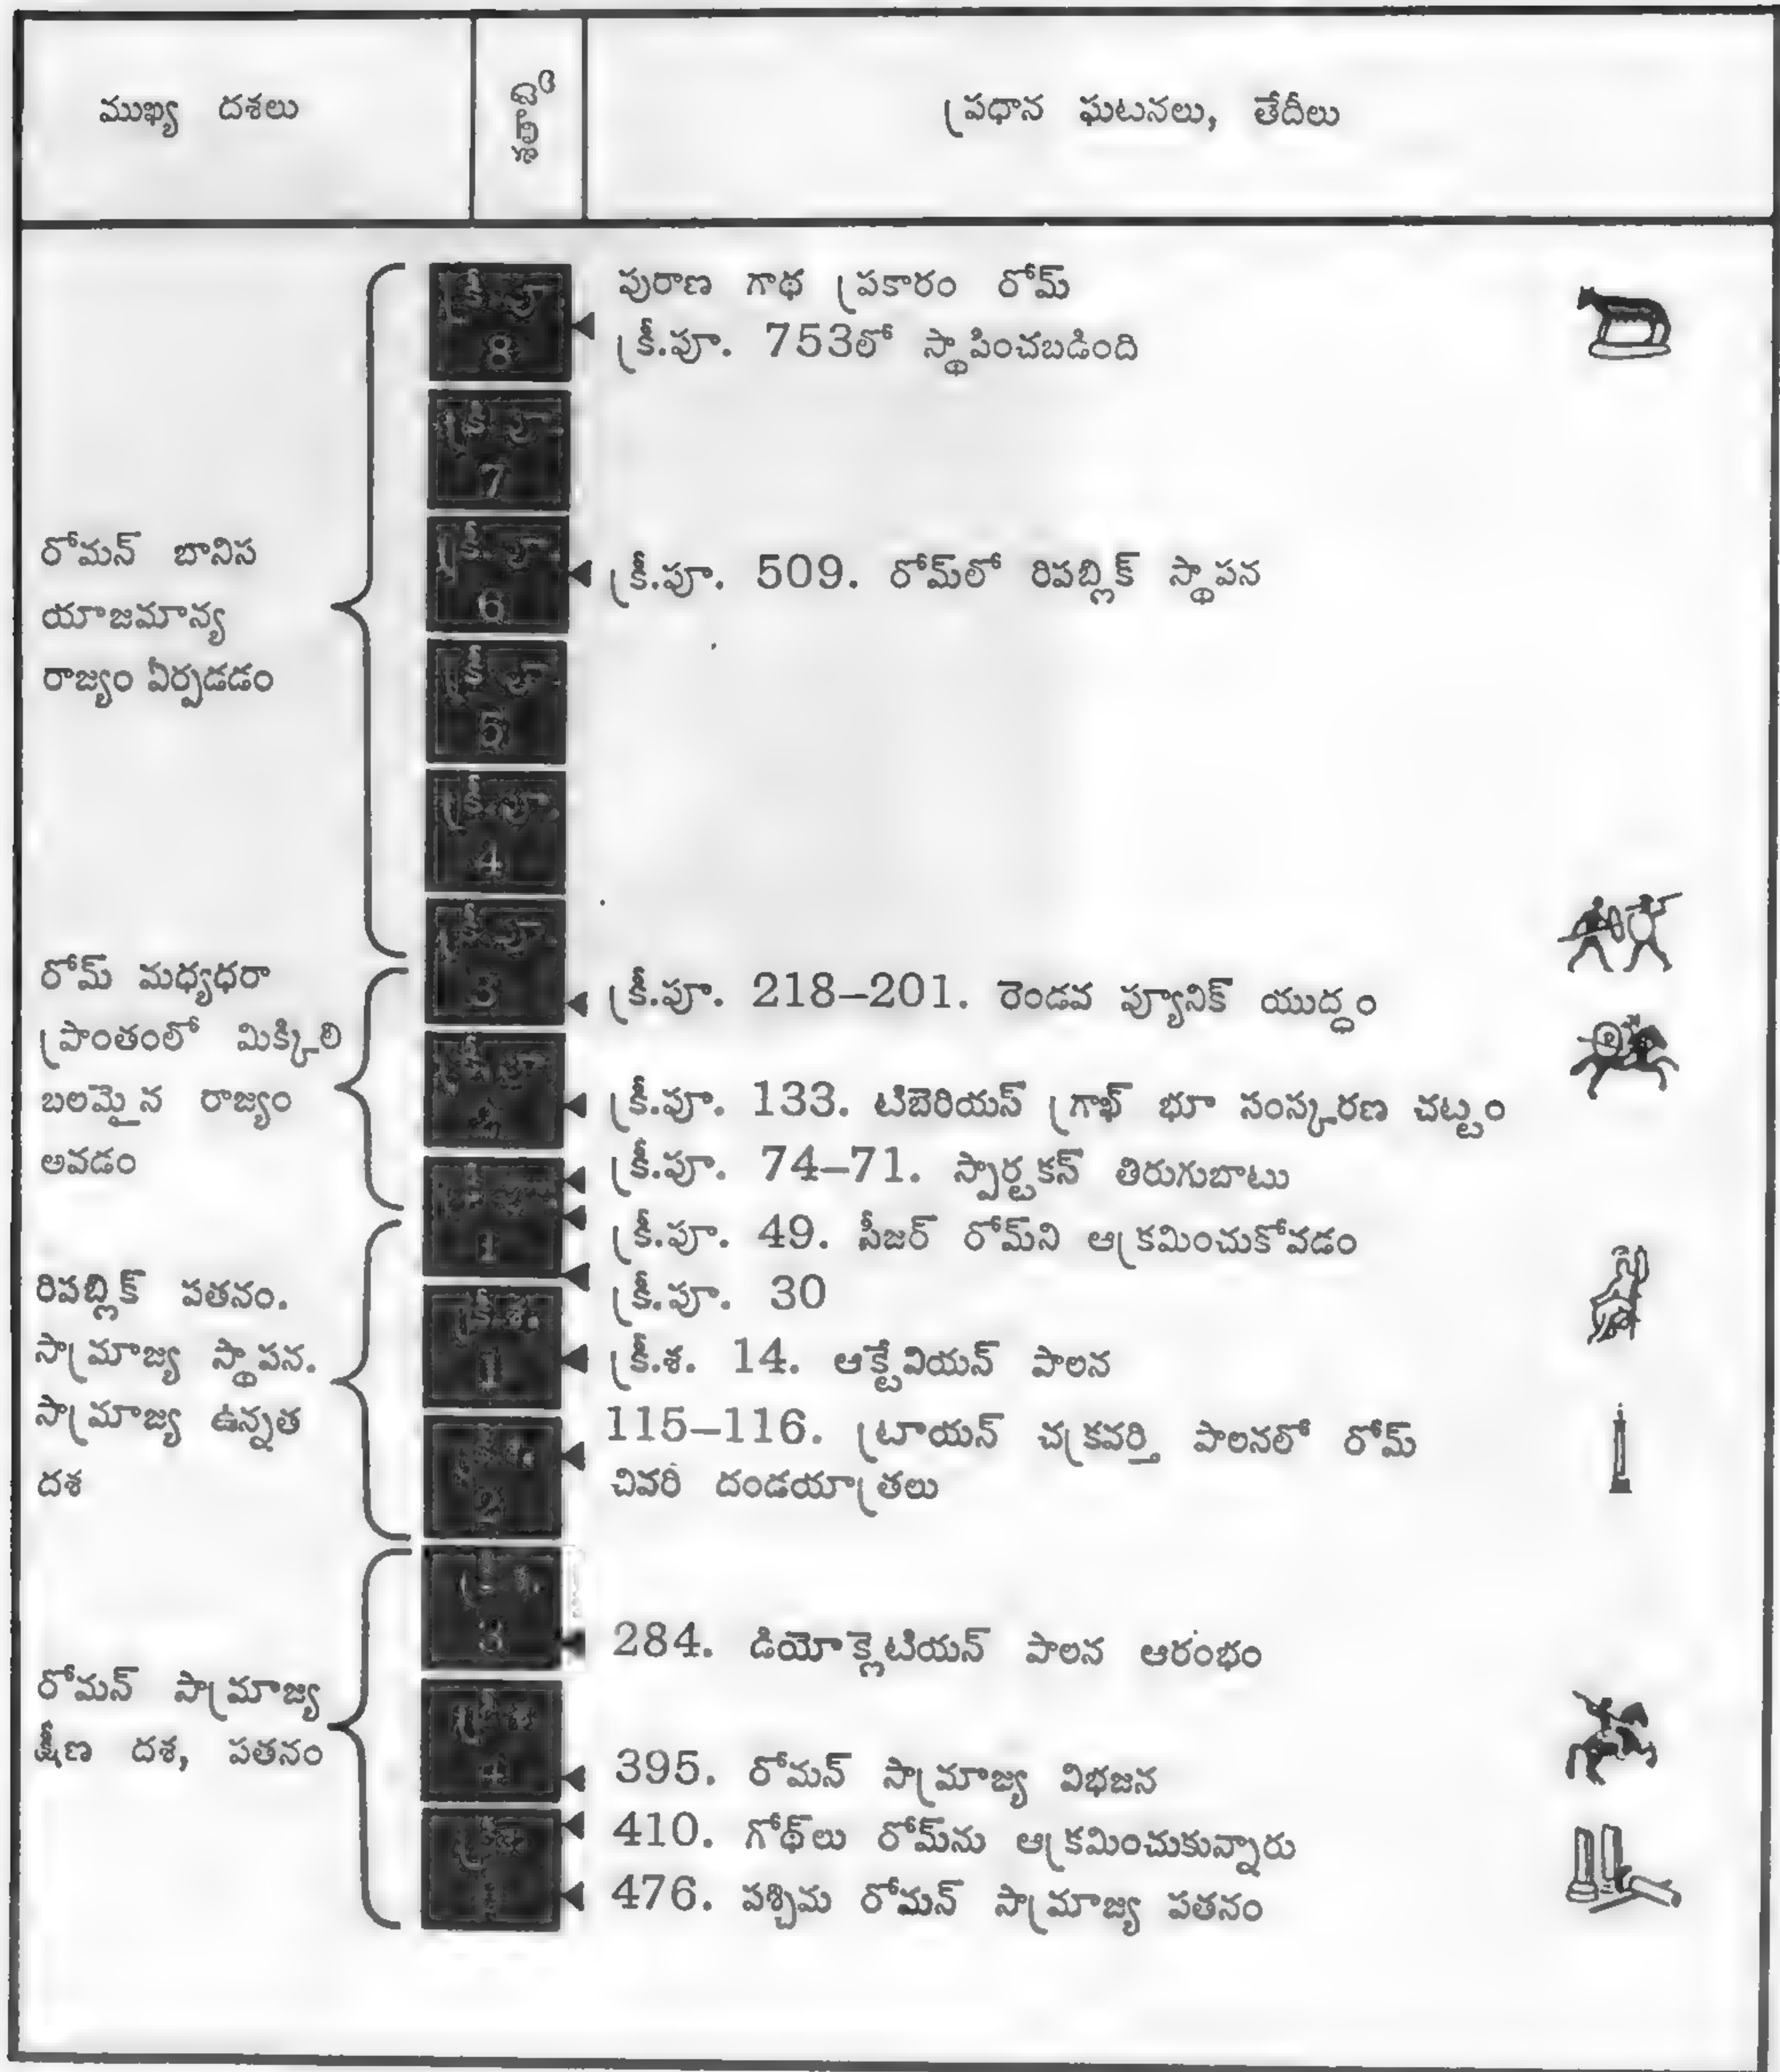 ముఖ్య దశలు
శతాబ్దం
ప్రధాన ఘటనలు, తేదీలు
రోమన్ బానిస
యాజమాన్య
రాజ్యం ఏర్పడడం
రోమ్ మధ్యధరా
ప్రాంతంలో మిక్కిలి
బలమైన రాజ్యం
అవడం
రిపబ్లిక్ పతనం.
సామ్రాజ్య స్థాపన.
సామ్రాజ్య ఉన్నత
దశ
రోమన్ సామ్రాజ్య
క్షీణ దశ, పతనం
క్రీ.పూ.
8
క్రీ.పూ.
7
క్రీ.పూ.
6
క్రీ.పూ.
5
క్రీ.పూ.
4
క్రీ.పూ.
3
1
క్రీ.శ.
1
2
3
4
పురాణ గాథ ప్రకారం రోమ్
క్రీ.పూ. 753లో స్థాపించబడింది
క్రీ.పూ. 509. రోమ్‌లో రిపబ్లిక్ స్థాపన
క్రీ.పూ. 218–201. రెండవ ప్యూనిక్ యుద్ధం
క్రీ.పూ. 133. టిబెరియస్ గ్రాఖ్ భూ సంస్కరణ చట్టం
క్రీ.పూ. 74–71. స్పార్టకస్ తిరుగుబాటు
క్రీ.పూ. 49. సీజర్ రోమ్‌ని ఆక్రమించుకోవడం
క్రీ.పూ. 30
క్రీ.శ. 14. ఆక్టేవియన్ పాలన
115–116. ట్రాయన్ చక్రవర్తి పాలనలో రోమ్
చివరి దండయాత్రలు
284. డియోక్లెటియన్ పాలన ఆరంభం
395. రోమన్ సామ్రాజ్య విభజన
410. గోథ్‌లు రోమ్‌ను ఆక్రమించుకున్నారు
476. పశ్చిమ రోమన్ సామ్రాజ్య పతనం